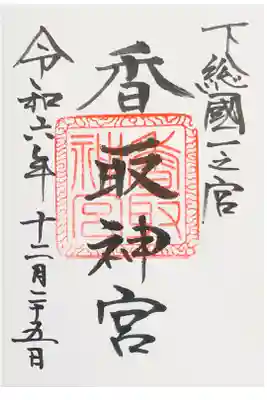 下総國一之宮
香取神宮
令和六年十二月二十五日